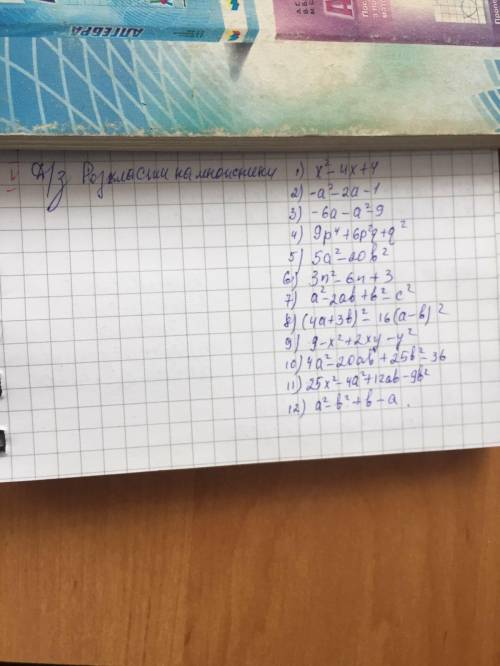 АЛГЕБРА
Д/з Розкласти на множники
1) x² - 4x + 4
2) -a² - 2a - 1
3) -6a - a² - 9
4) 9p⁴ + 6p²q + q²
5) 5a² - 20b²
6) 3n² - 6n + 3
7) a² - 2ab + b² - c²
8) (4a + 3b)² - 16(a - b)²
9) 9 - x² + 2xy - y²
10) 4a² - 20ab + 25b² - 36
11) 25x² - 4a² + 12ab - 9b²
12) a² - b² + b - a.